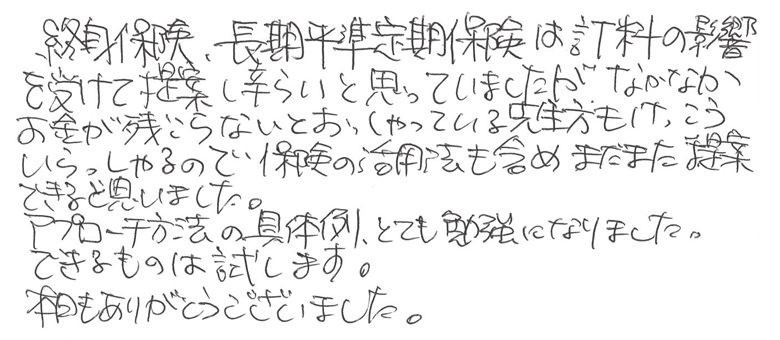 終身保険、長期平準定期保険は訂料の影響
を受けて提案し辛らいと思っていましたが なかなか、
お金が残こらないとおっしゃっている先生方もけっこう
いらっしゃるので 保険の活用法も含め まだまだ提案
できると思いました。
アプローチ方法の具体例、とても勉強になりました。
できるものは試します。
本日もありがとうございました。